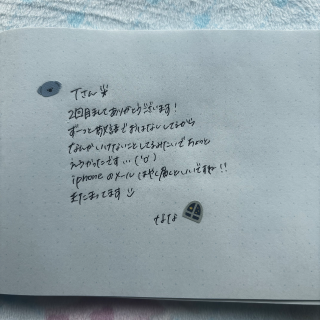 Tさん
2回目ましてありがとうございます!
ずーっと敬語でおはなししてるから
なんかいけないことしてるみたいでちょっと
えろかったです…('o')
iphoneのメールはやく届くといいですね!!
またまってます
ななな